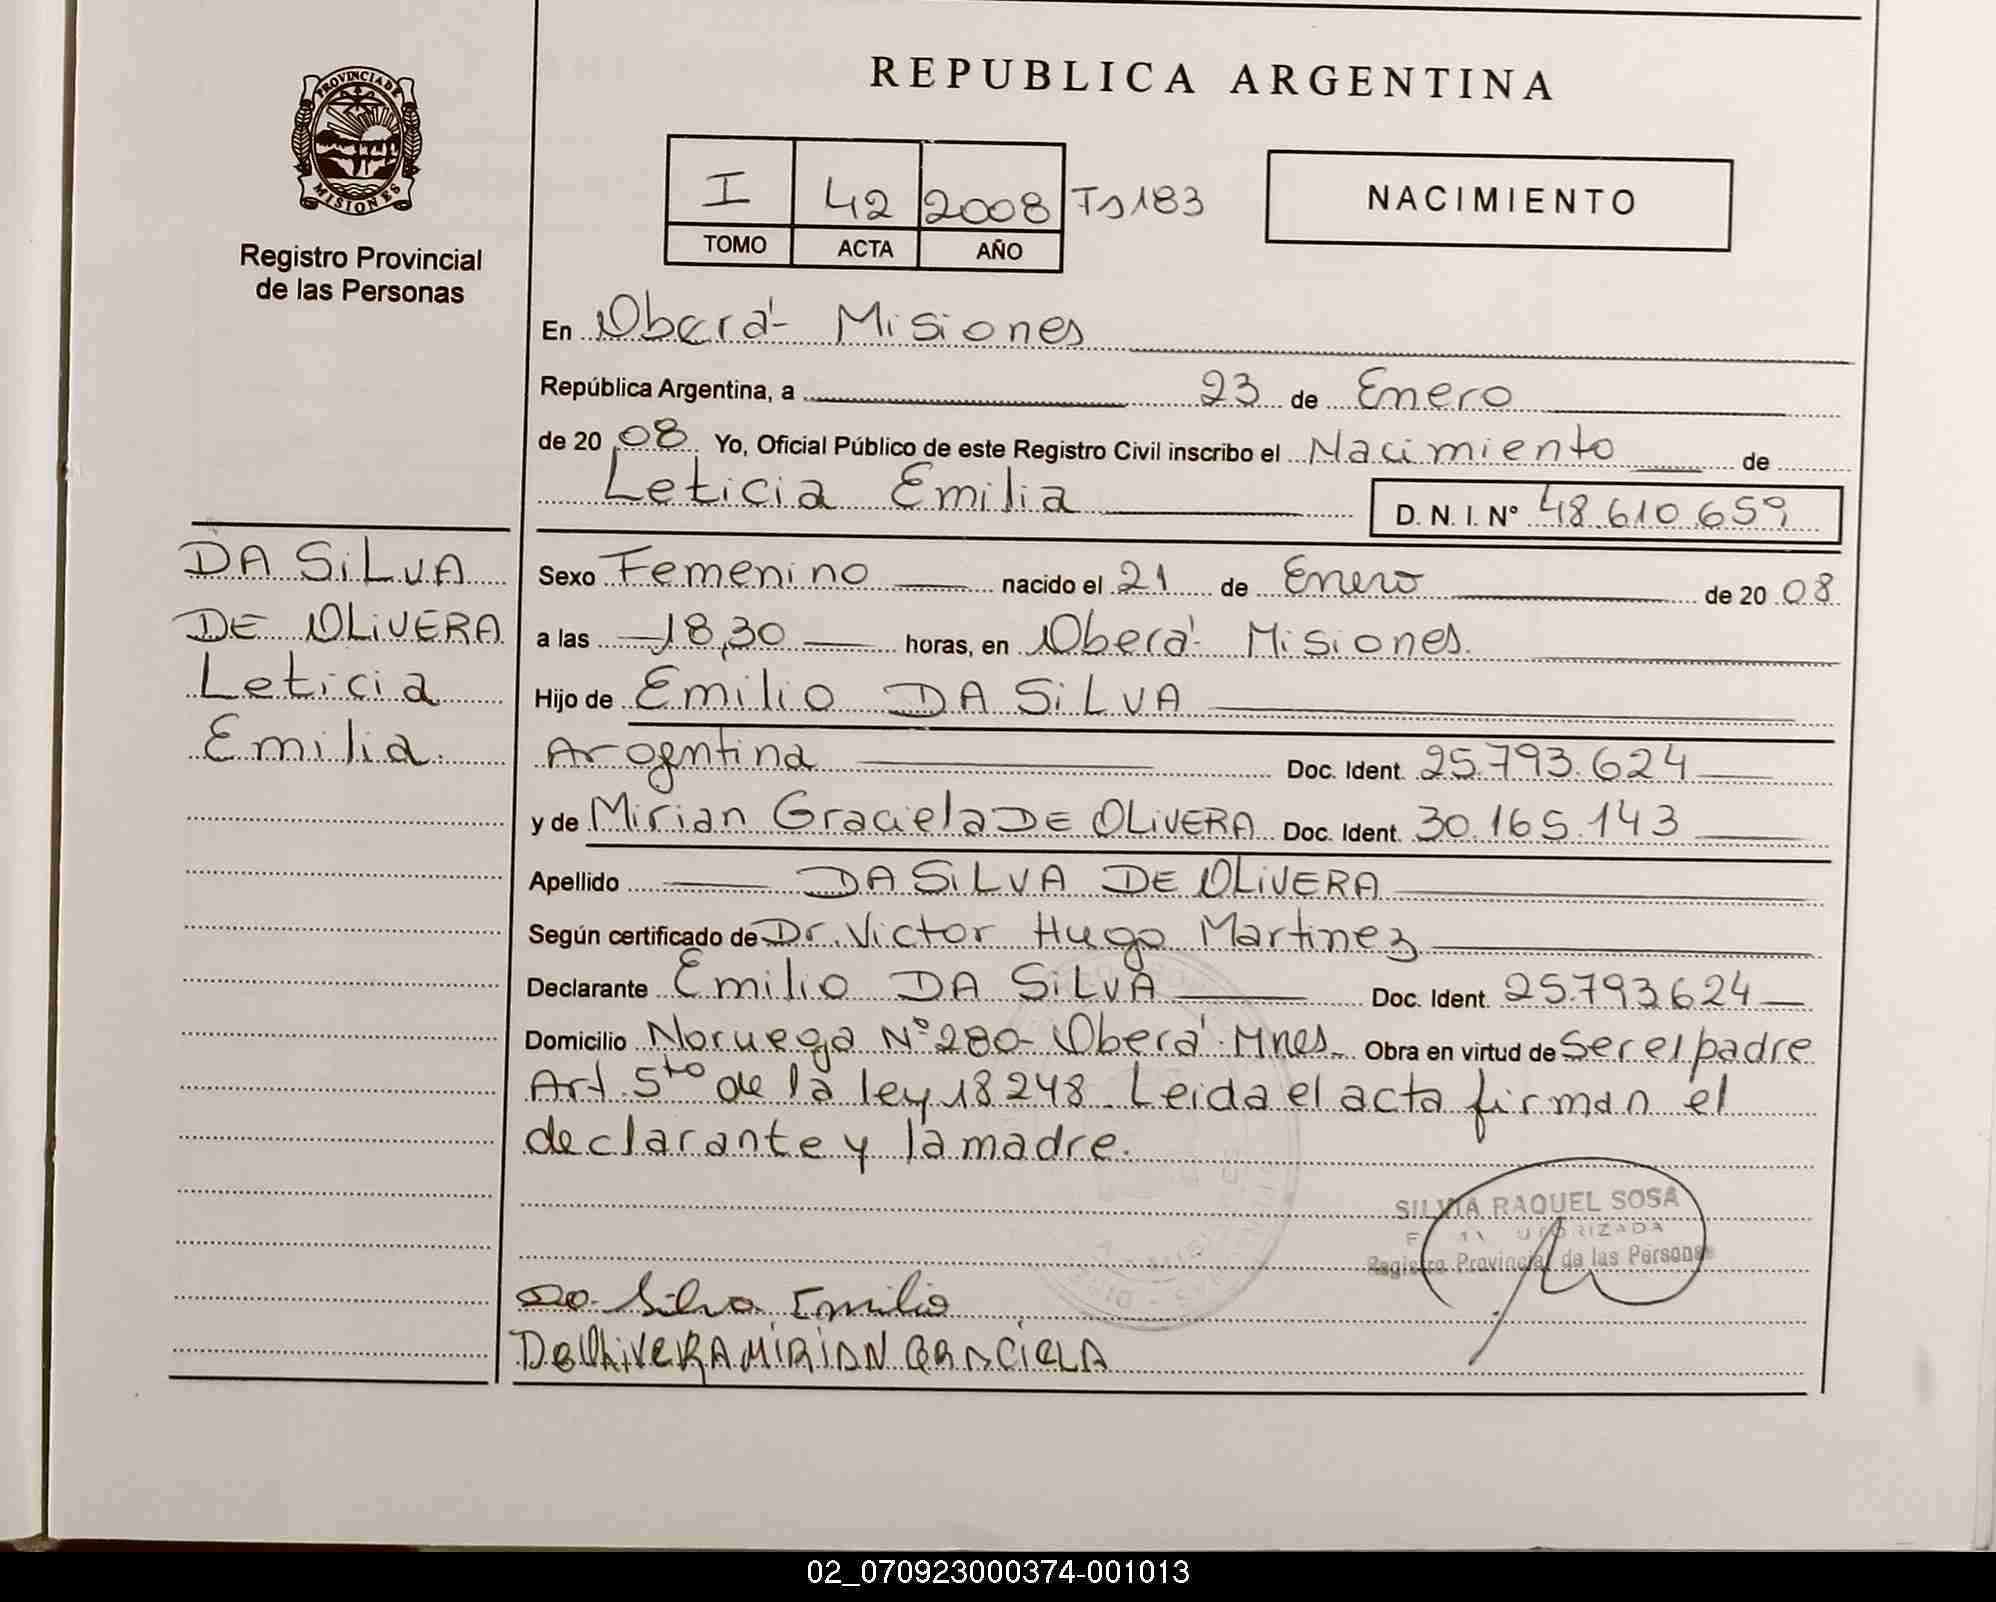 REPUBLICA ARGENTINA
PROVINCIA DE
MISIONES
Registro Provincial
de las Personas
I 42 2008 Ts 183
TOMO ACTA AÑO
NACIMIENTO
En Oberá - Misiones
República Argentina, a 23 de Enero
de 20 08 Yo, Oficial Público de este Registro Civil inscribo el Nacimiento de
Leticia Emilia D. N. I. Nº 48.610.659
DA SiLVA
DE OLiVERA
Leticia
Emilia.
Sexo Femenino nacido el 21 de Enero de 20 08
a las 18,30 horas, en Oberá - Misiones.
Hijo de Emilio DA SiLVA
Argentina Doc. Ident. 25.793.624
y de Mirian Graciela DE OLiVERA Doc. Ident. 30.165.143
Apellido DA SiLVA DE OLiVERA
Según certificado de Dr. Victor Hugo Martinez
Declarante Emilio DA SiLVA Doc. Ident. 25.793.624
Domicilio Noruega Nº 280 - Oberá - Mnes. Obra en virtud de Ser el padre
Art. 5to de la ley 18248. Leida el acta firman el
declarante y la madre.
SILVIA RAQUEL SOSA
Registro Provincial de las Personas
Da Silva Emilio
De OliVERA MIRIAN GRACIELA
02_070923000374-001013